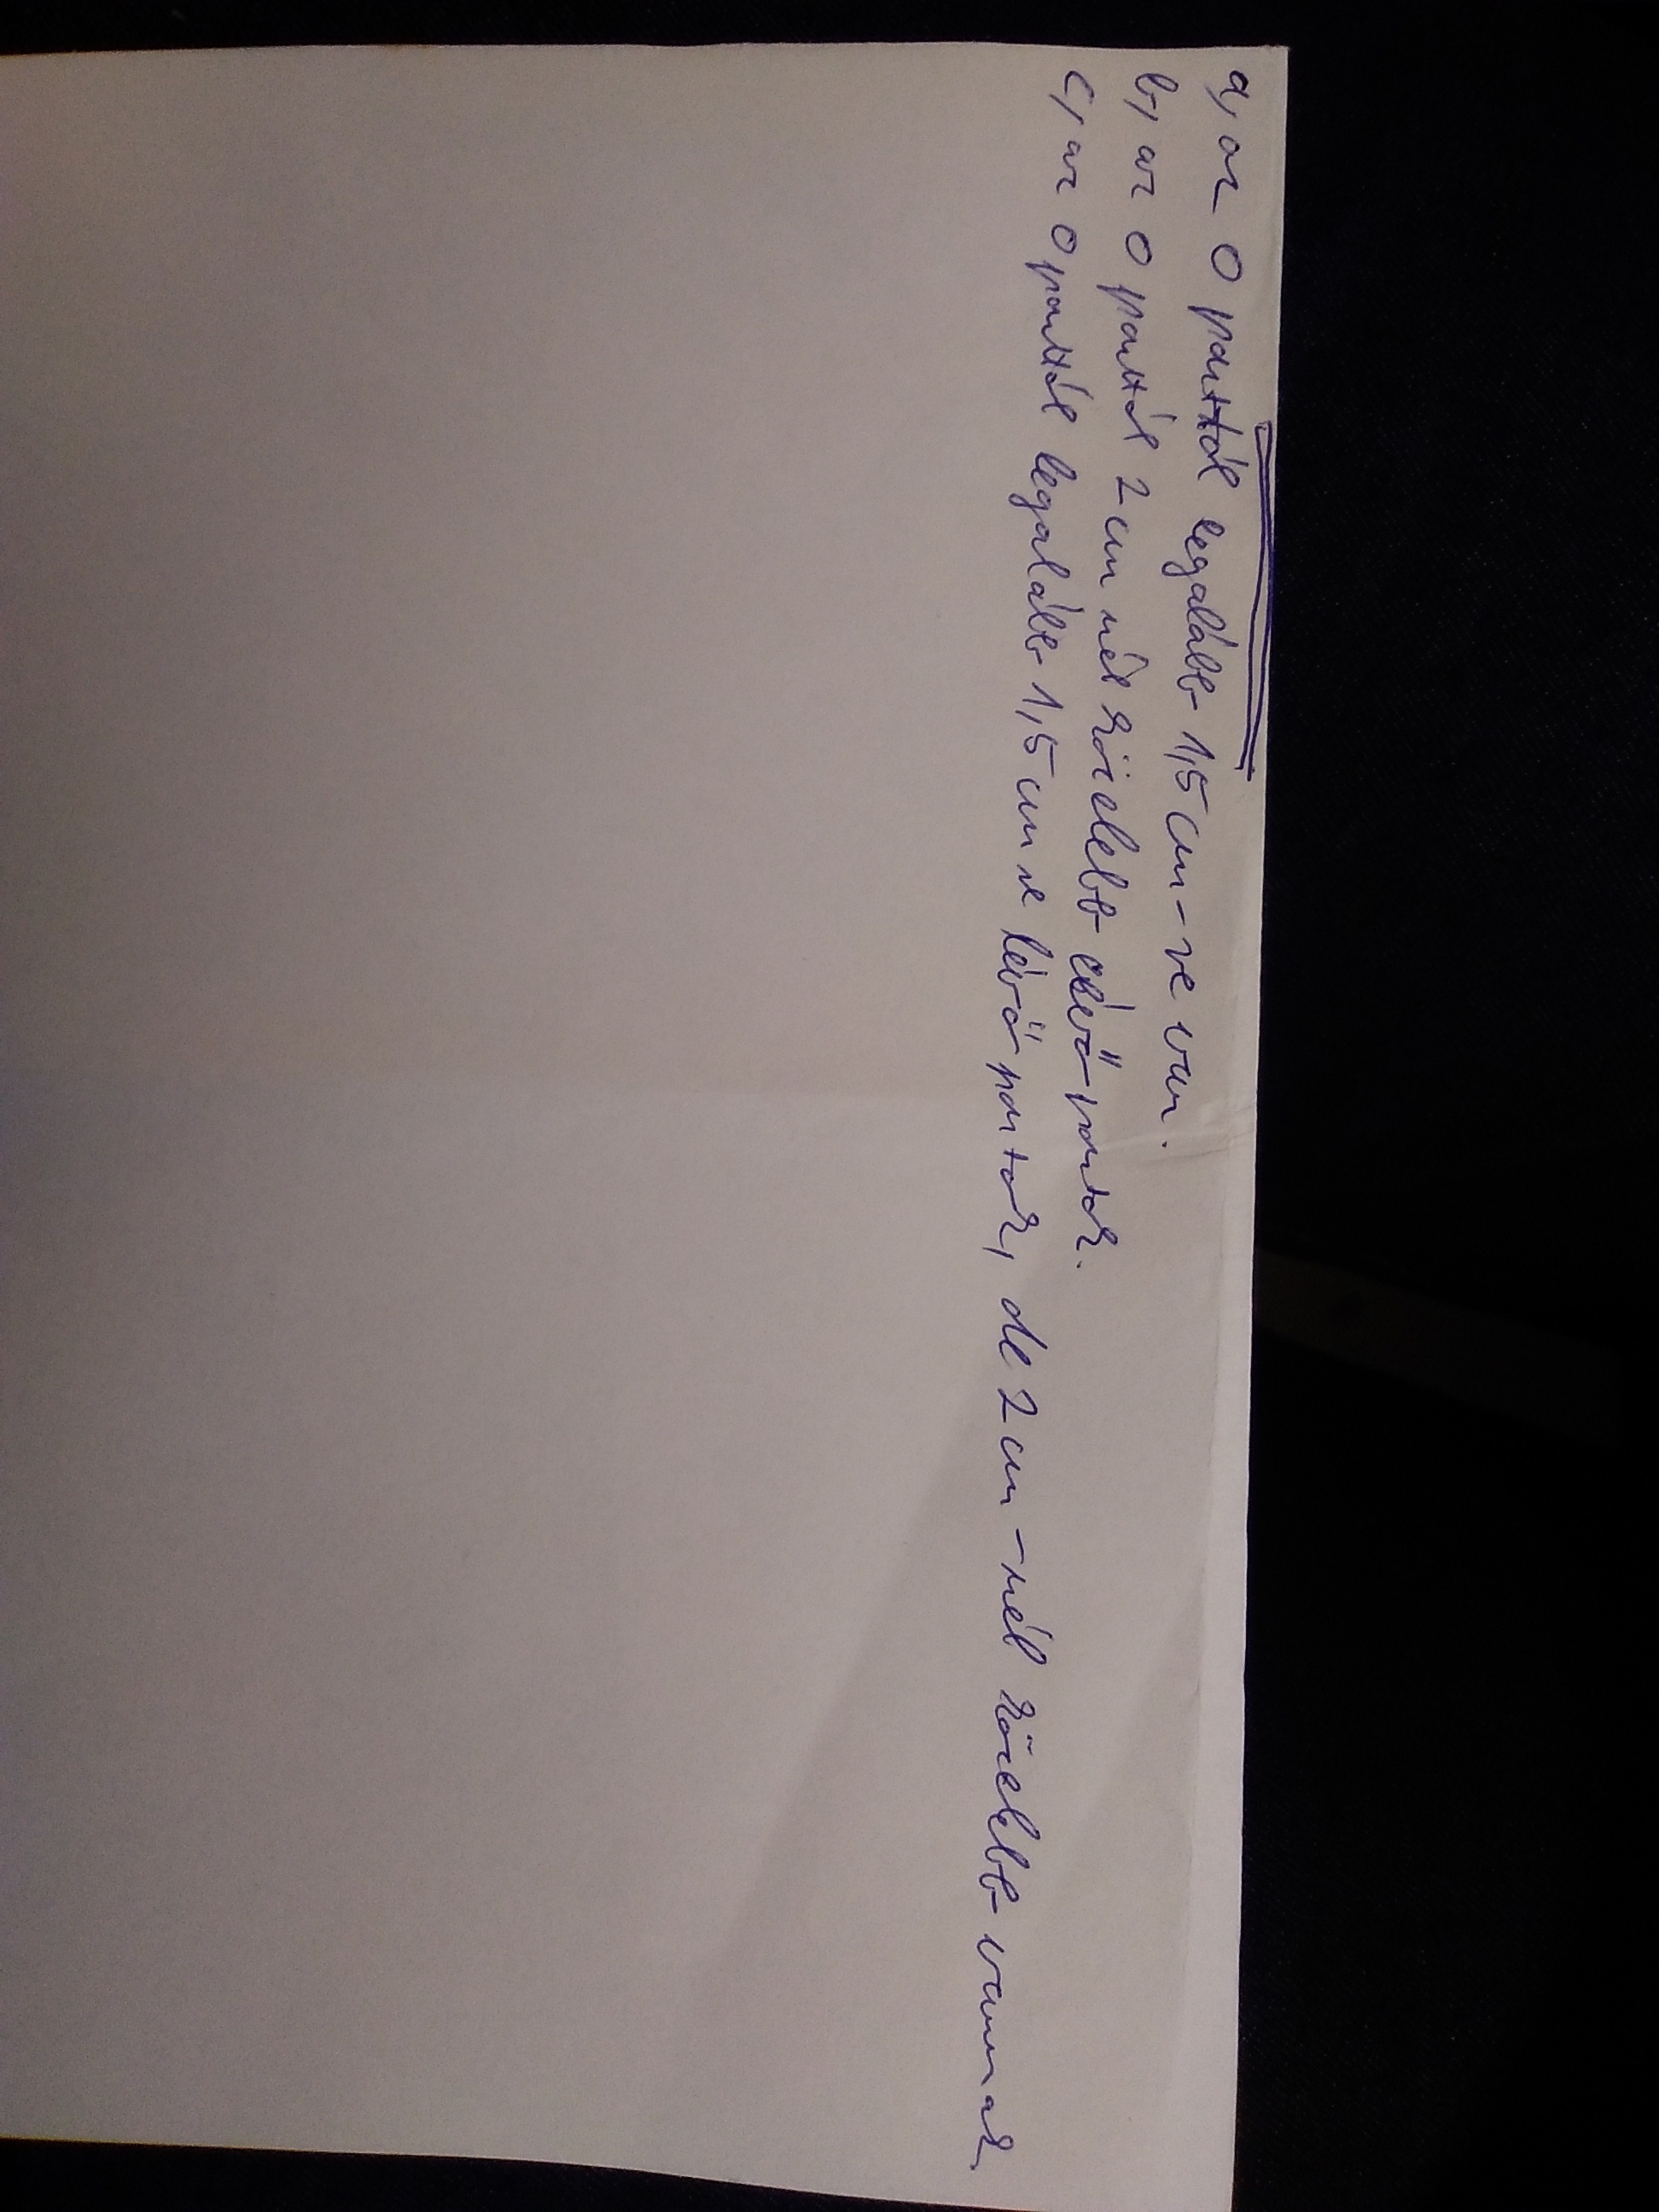 a, az O ponttól legalább 1,5 cm-re van.
b, az O ponttól 2 cm nél közelebb lévő pontok.
c, az O ponttól legalább 1,5 cm re lévő pontok, de 2 cm-nél közelebb vannak